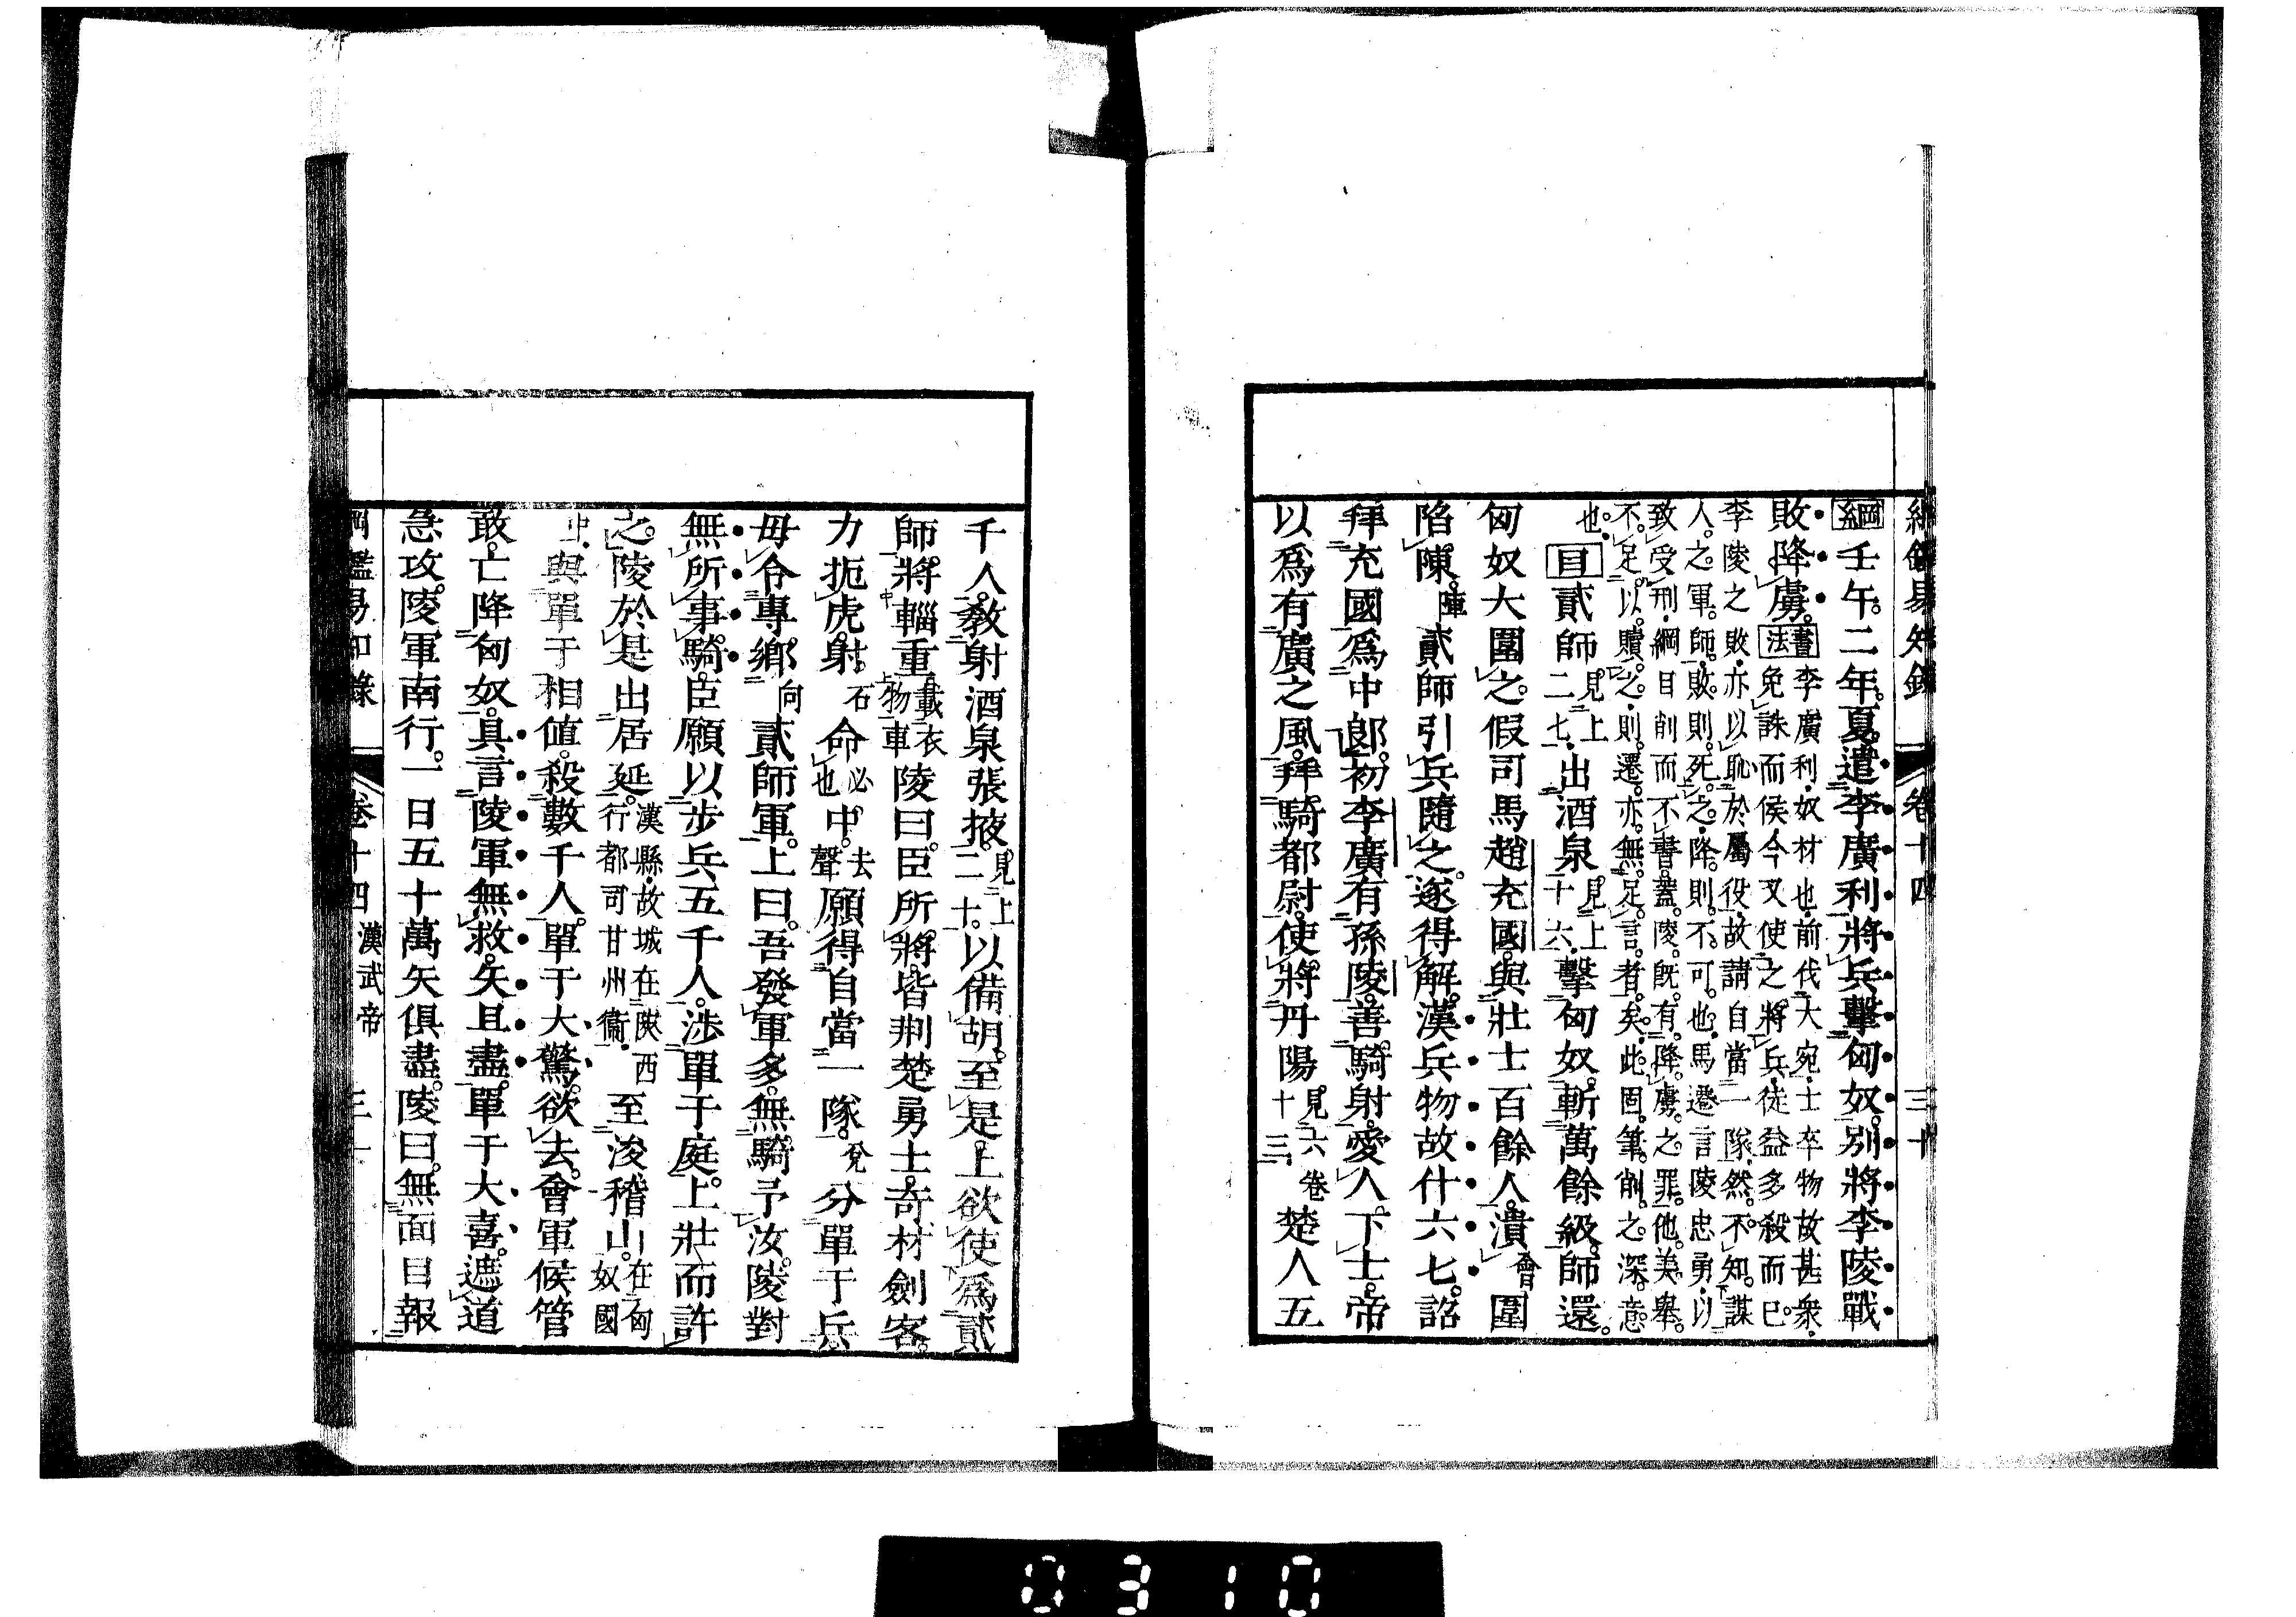 綱鑑易知錄 卷十四 三十
綱壬午。二年。夏。遣李廣利將兵擊匈奴。別將李陵戰
敗降虜。書法李廣利奴材也前伐大宛士卒物故甚衆
免誅而侯今又使之將兵徒益多殺而已。
李陵之敗亦以恥於屬役故請自當一隊然不知謀
人之軍師敗則死之降則不可也馬遷言陵忠勇以
致受刑綱目削而不書蓋陵既有降虜之罪他美舉
不足以贖之則遷亦無足言者矣此固筆削之深意
也。目貳師見上二七出酒泉見上十六擊匈奴。斬萬餘級。師還。
匈奴大圍之。假司馬趙充國與壯士百餘人。潰會圍
陷陳。陣貳師引兵隨之。遂得解。漢兵物故什六七。詔
拜充國爲中郎。初李廣有孫陵。善騎射。愛人下士。帝
以爲有廣之風。拜騎都尉。使將丹陽見六卷十三楚人五
千人。教射酒泉張掖。見上二十。以備胡。至是。上欲使爲貳
師。將輜重載衣物車陵曰。臣所將。皆荆楚勇士。奇材劍客。
力扼虎。射石命必也中。去聲願得自當一隊。兌分單于兵。
毋令專鄉向貳師軍。上曰。吾發軍多。無騎予汝。陵對
無所事騎。臣願以步兵五千人。涉單于庭。上壯而許
之。陵於是出居延。漢縣故城在陝西行都司甘州衞至浚稽山。在匈奴國
中與單于相値。殺數千人。單于大驚。欲去。會軍候管
敢。亡降匈奴。具言陵軍無救。矢且盡。單于大喜。遮道
急攻。陵軍南行。一日五十萬矢俱盡。陵曰。無面目報
綱鑑易知錄 卷十四 漢武帝 三十一
0310